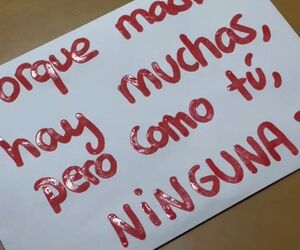 orque mad
hay muchas,
pero como tú,
NiNGUNA